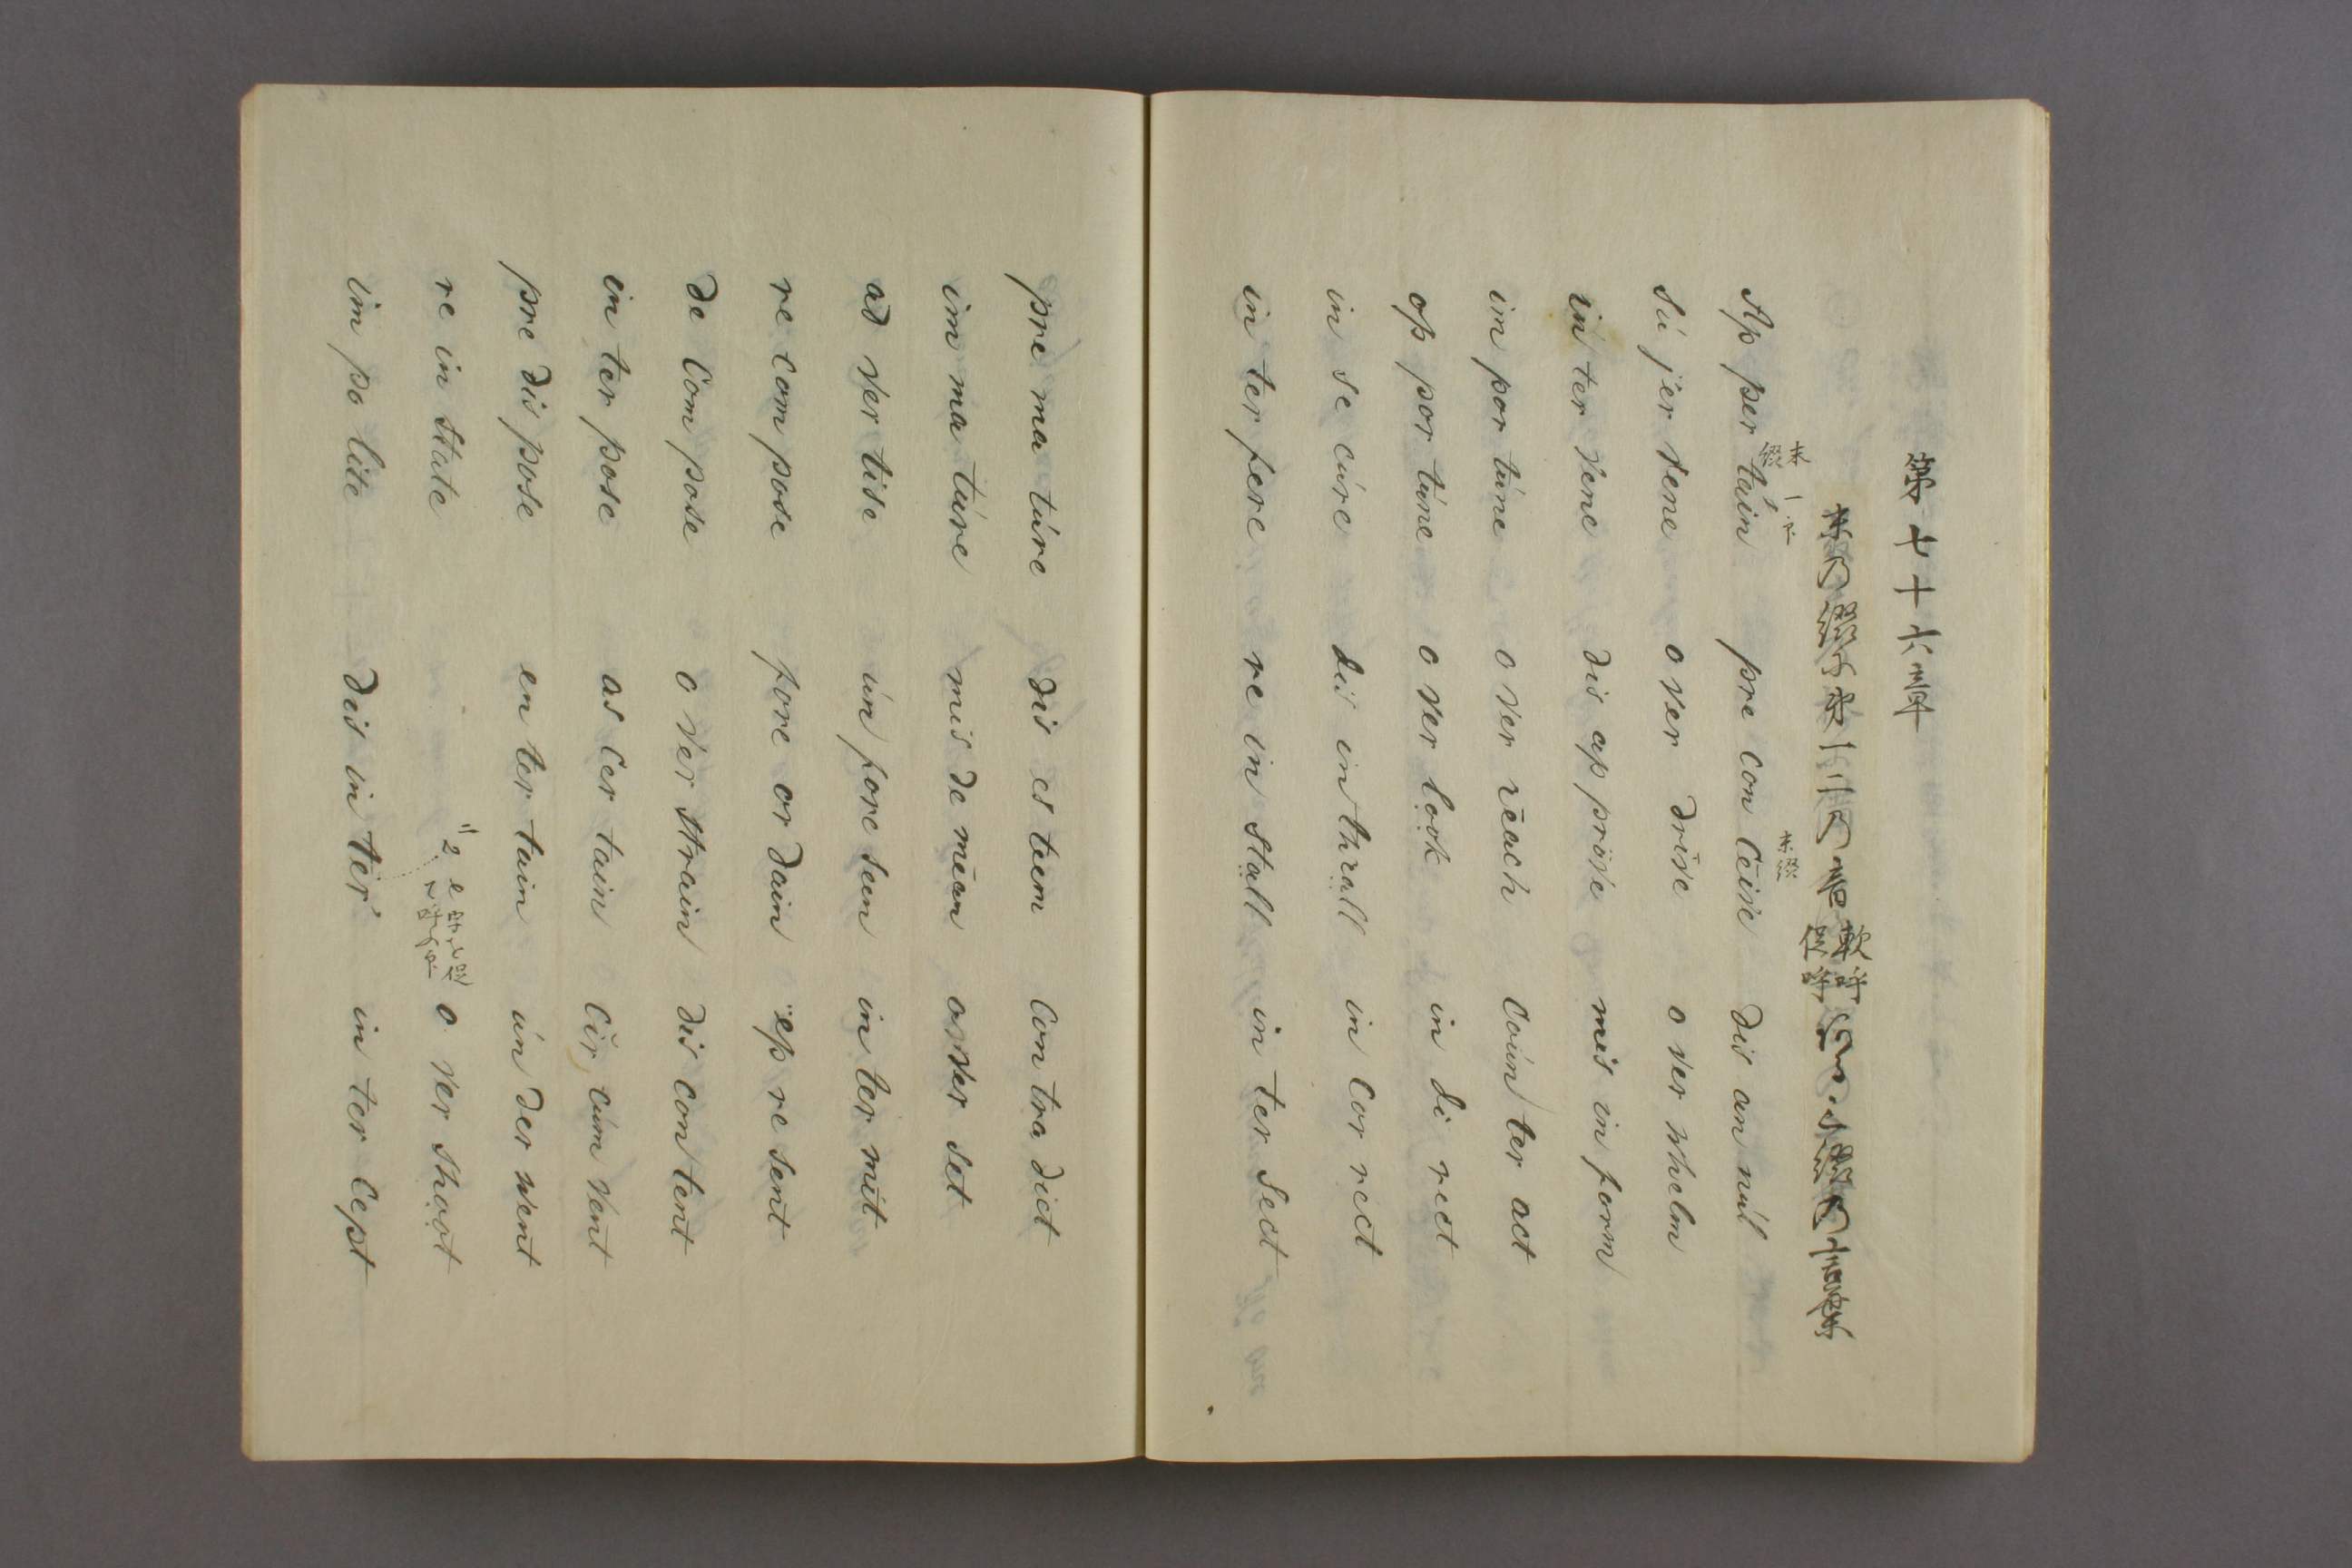 第七十六章
軟呼
促呼
末
綴
末綴
Ap per tain pre con ceive dis an nul
su per vene o ver drive o ver whelm
in ter vene dis ap prove mis in form
im por tune o ver reach coun ter act
op por tune o ver look in di rect
in se cure dis in thrall in cor rect
in ter fere re in stall in ter sect
pre ma ture dis es teem con tra dict
im ma ture mis de mean o ver set
ad ver tise un fore seen in ter mit
re com pose fore or dain rep re sent
de com pose o ver strain dis con tent
in ter pose as cer tain cir cum vent
pre dis pose en ter tain un der went
re in state o ver shoot
im po lite dis in ter in ter cept